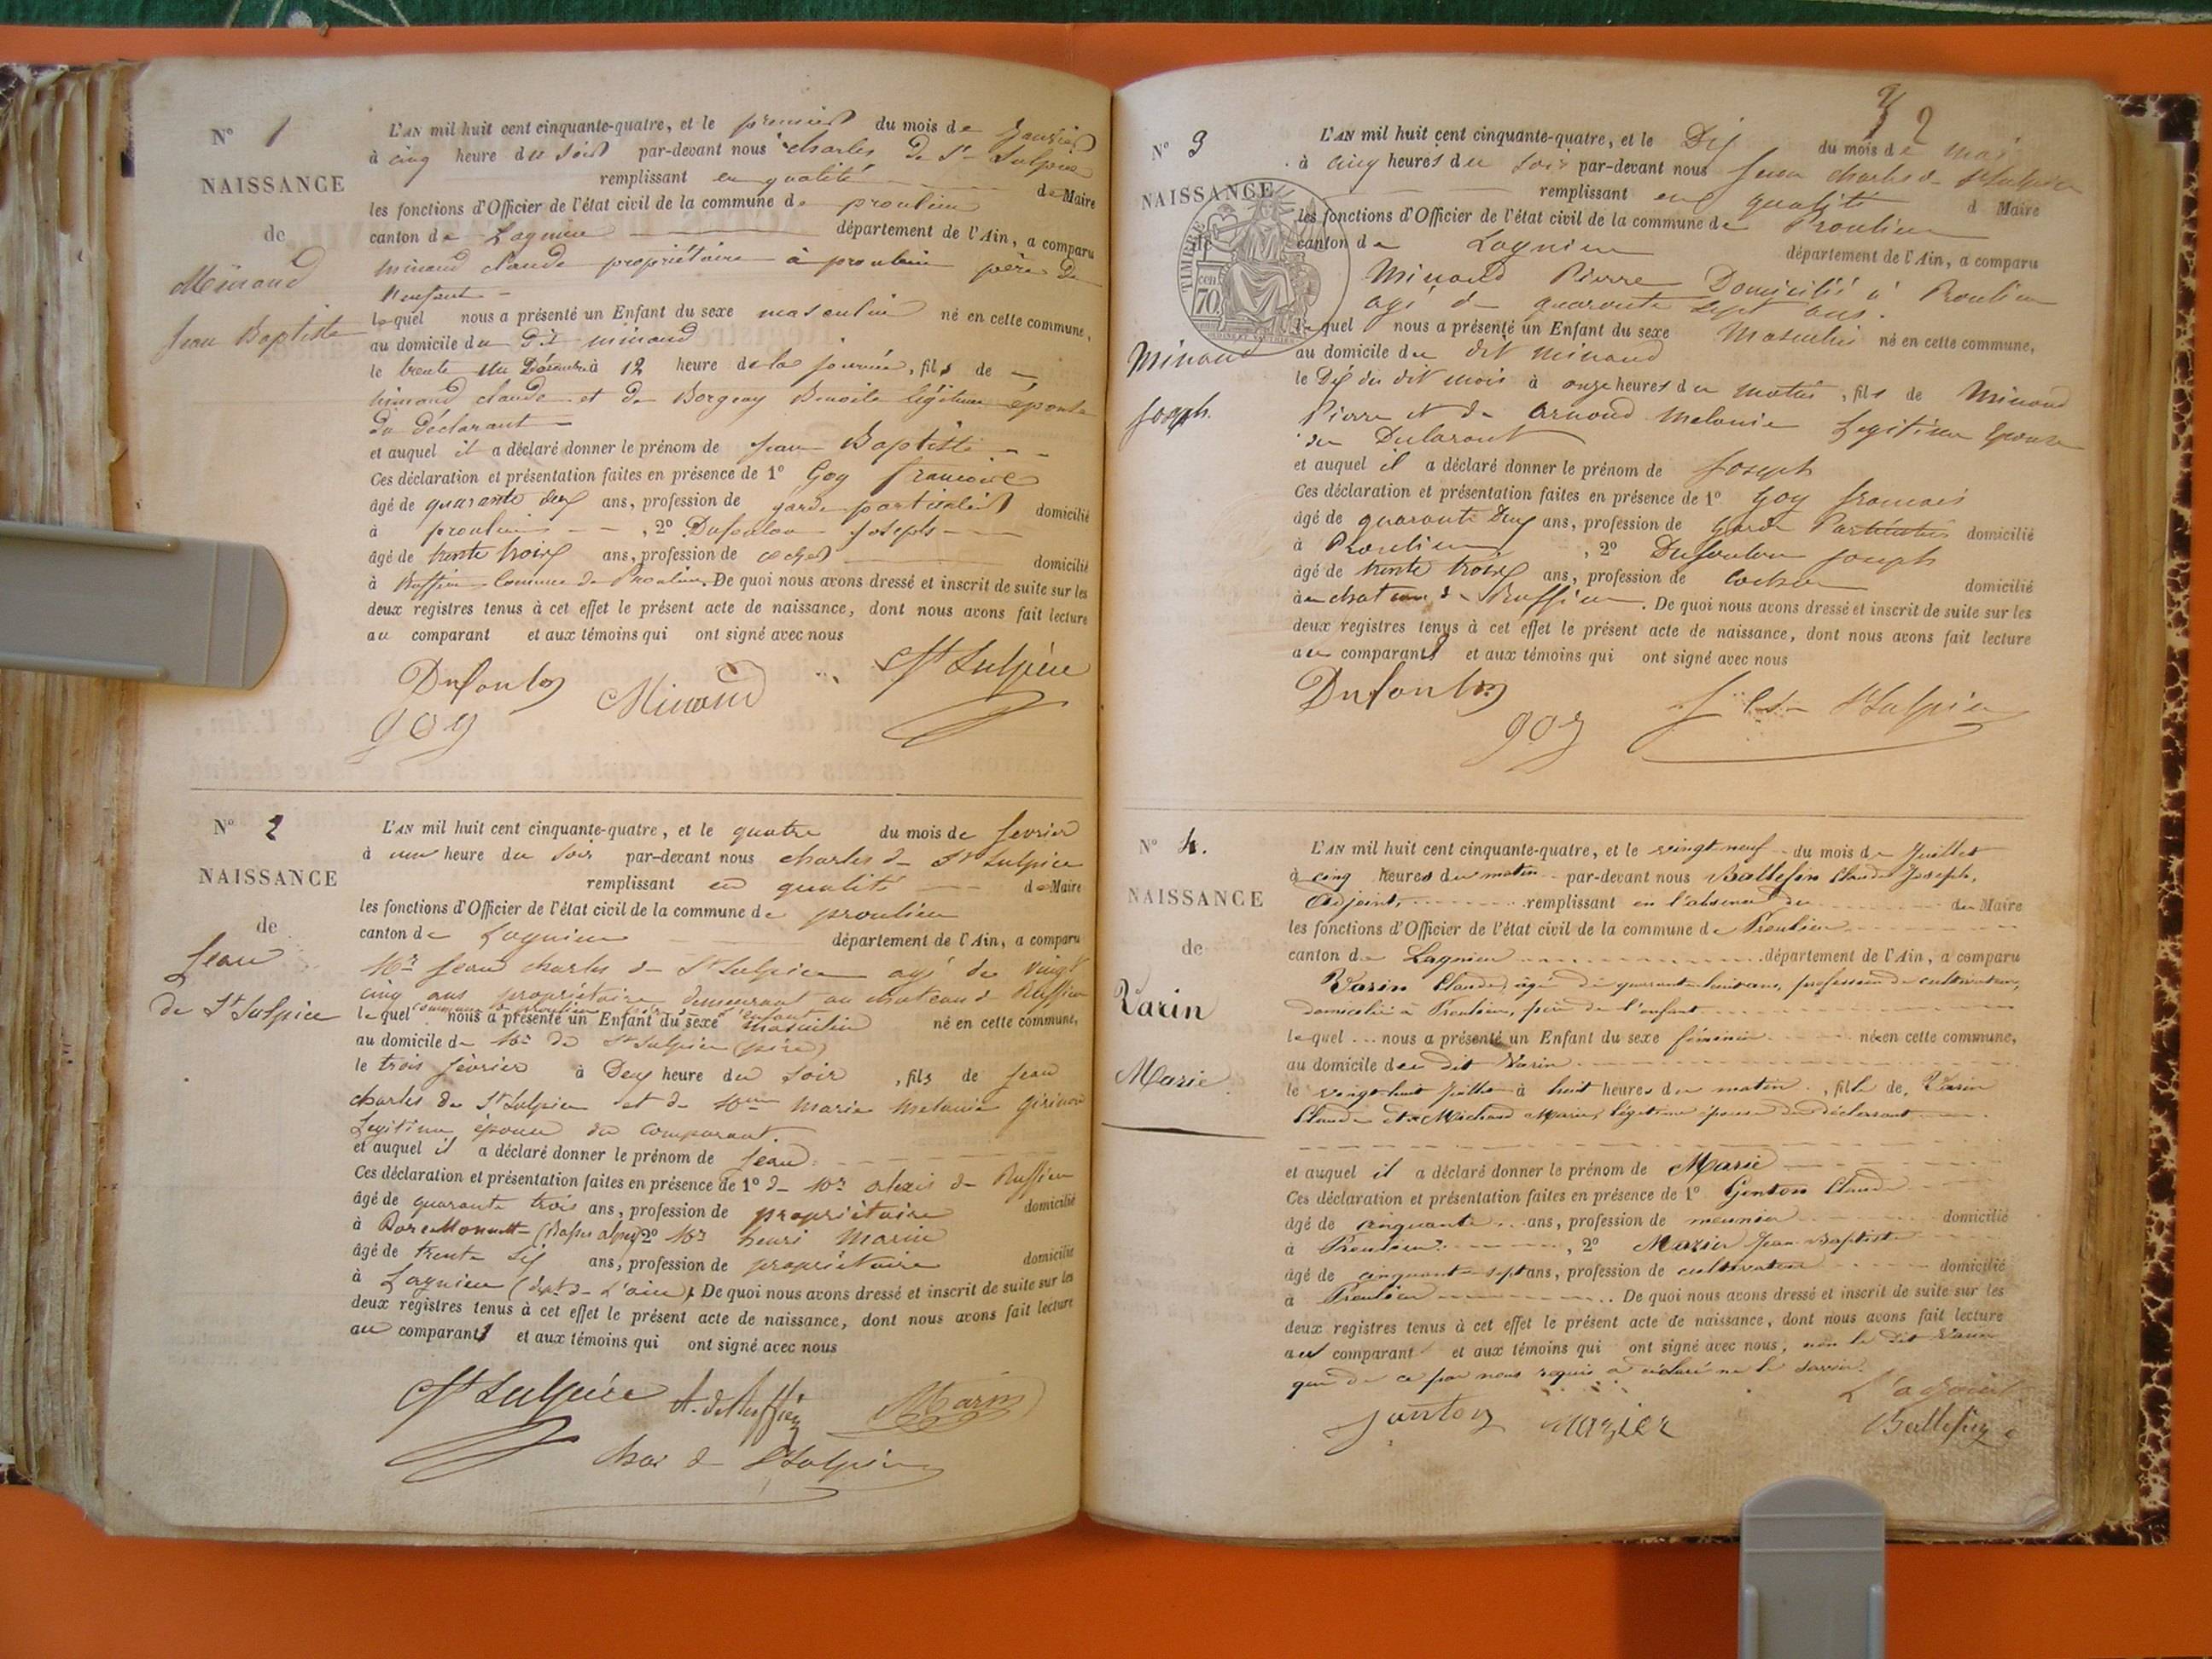 N° 1
NAISSANCE
de
Minaud
Jean Baptiste
L'AN mil huit cent cinquante-quatre, et le premier du mois de Janvier
à cinq heure du soir par-devant nous charles de St Sulpice
remplissant en qualité de Maire
les fonctions d'Officier de l'état civil de la commune de proulieu
canton de Lagnieu département de l'Ain, a comparu
minaud claude propriétaire à proulieu père de
l'enfant
lequel nous a présenté un Enfant du sexe masculin né en cette commune,
au domicile du dit minaud
le trente un Décembre à 12 heure de la journée, fils de
minaud claude et de Benoite légitime épouse
du déclarant
et auquel il a déclaré donner le prénom de Jean Baptiste
Ces déclaration et présentation faites en présence de 1° Goy francois
âgé de quarante deux ans, profession de garde particulier domicilié
à proulieu , 2° Dufoulon Joseph
âgé de trente trois ans, profession de cocher domicilié
à Ruffieu Commune de Proulieu. De quoi nous avons dressé et inscrit de suite sur les
deux registres tenus à cet effet le présent acte de naissance, dont nous avons fait lecture
au comparant et aux témoins qui ont signé avec nous
Dufoulon Minaud St Sulpice
goy
N° 2
NAISSANCE
de
Jean
de St Sulpice
L'AN mil huit cent cinquante-quatre, et le quatre du mois de fevrier
à une heure du soir par-devant nous charles de St Sulpice
remplissant en qualité de Maire
les fonctions d'Officier de l'état civil de la commune de proulieu
canton de Lagnieu département de l'Ain, a comparu
Mr Jean charles de St Sulpice agé de vingt
cinq ans propriétaire demeurant au chateau de Ruffieu
commune de proulieu père de l'enfant
lequel nous a présenté un Enfant du sexe masculin né en cette commune,
au domicile de Mr de St Sulpice (père)
le trois fevrier à Deux heure du soir , fils de Jean
charles de St Sulpice et de Mme Marie Melanie
Legitime épouse du Comparant.
et auquel il a déclaré donner le prénom de Jean
Ces déclaration et présentation faites en présence de 1° de Mr alexis de Ruffieu
âgé de quarante trois ans, profession de propriétaire domicilié
à (Basses alpes) 2° Mr henri Marin
âgé de trente six ans, profession de propriétaire domicilié
à Lagnieu (dpt de L'ain). De quoi nous avons dressé et inscrit de suite sur les
deux registres tenus à cet effet le présent acte de naissance, dont nous avons fait lecture
au comparant et aux témoins qui ont signé avec nous
St Sulpice A. de Ruffieu Marin
de St Sulpice
2
N° 3
NAISSANCE
de
TIMBRE
70
Minaud
Joseph
L'AN mil huit cent cinquante-quatre, et le Dix du mois de mai
à cinq heures du soir par-devant nous Jean charles de St Sulpice
remplissant en qualité d Maire
les fonctions d'Officier de l'état civil de la commune de Proulieu
canton de Lagnieu département de l'Ain, a comparu
Minaud Pierre Domicilié à Proulieu
agé de quarante sept ans.
lequel nous a présenté un Enfant du sexe Masculin né en cette commune,
au domicile du dit minaud
le Dix du dit mois à onze heures du matin , fils de Minaud
Pierre et de Arnoud Melanie Legitime Epouse
du Declarant
et auquel il a déclaré donner le prénom de Joseph
Ces déclaration et présentation faites en présence de 1° Goy francois
âgé de quarante Deux ans, profession de garde Particulier domicilié
à Proulieu , 2° Dufoulon Joseph
âgé de trente trois ans, profession de Cocher domicilié
au chateau de Ruffieu. De quoi nous avons dressé et inscrit de suite sur les
deux registres tenus à cet effet le présent acte de naissance, dont nous avons fait lecture
au comparant et aux témoins qui ont signé avec nous
Dufoulon
goy St Sulpice
N° 4.
NAISSANCE
de
Varin
Marie
L'AN mil huit cent cinquante-quatre, et le vingt neuf du mois de Juillet
à cinq heures du matin par-devant nous Ballefin Claude Joseph,
Adjoint, remplissant en l'absence du du Maire
les fonctions d'Officier de l'état civil de la commune de Proulieu
canton de Lagnieu département de l'Ain, a comparu
Varin Claude, âgé de quarante huit ans, profession de cultivateur,
domicilié à Proulieu, père de l'enfant
lequel nous a présenté un Enfant du sexe féminin né en cette commune,
au domicile du dit Varin
le vingt huit Juillet à huit heures du matin , fille de Varin
Claude et de Michaud Marie, légitime épouse du déclarant
et auquel il a déclaré donner le prénom de Marie
Ces déclaration et présentation faites en présence de 1° Genton Claude
âgé de cinquante ans, profession de meunier domicilié
à Proulieu , 2° Mazier Jean Baptiste
âgé de cinquante sept ans, profession de cultivateur domicilié
à Proulieu. De quoi nous avons dressé et inscrit de suite sur les
deux registres tenus à cet effet le présent acte de naissance, dont nous avons fait lecture
au comparant et aux témoins qui ont signé avec nous, non le dit Varin
qui de ce par nous requis a déclaré ne le savoir.
L'adjoint
janton mazier Ballefin